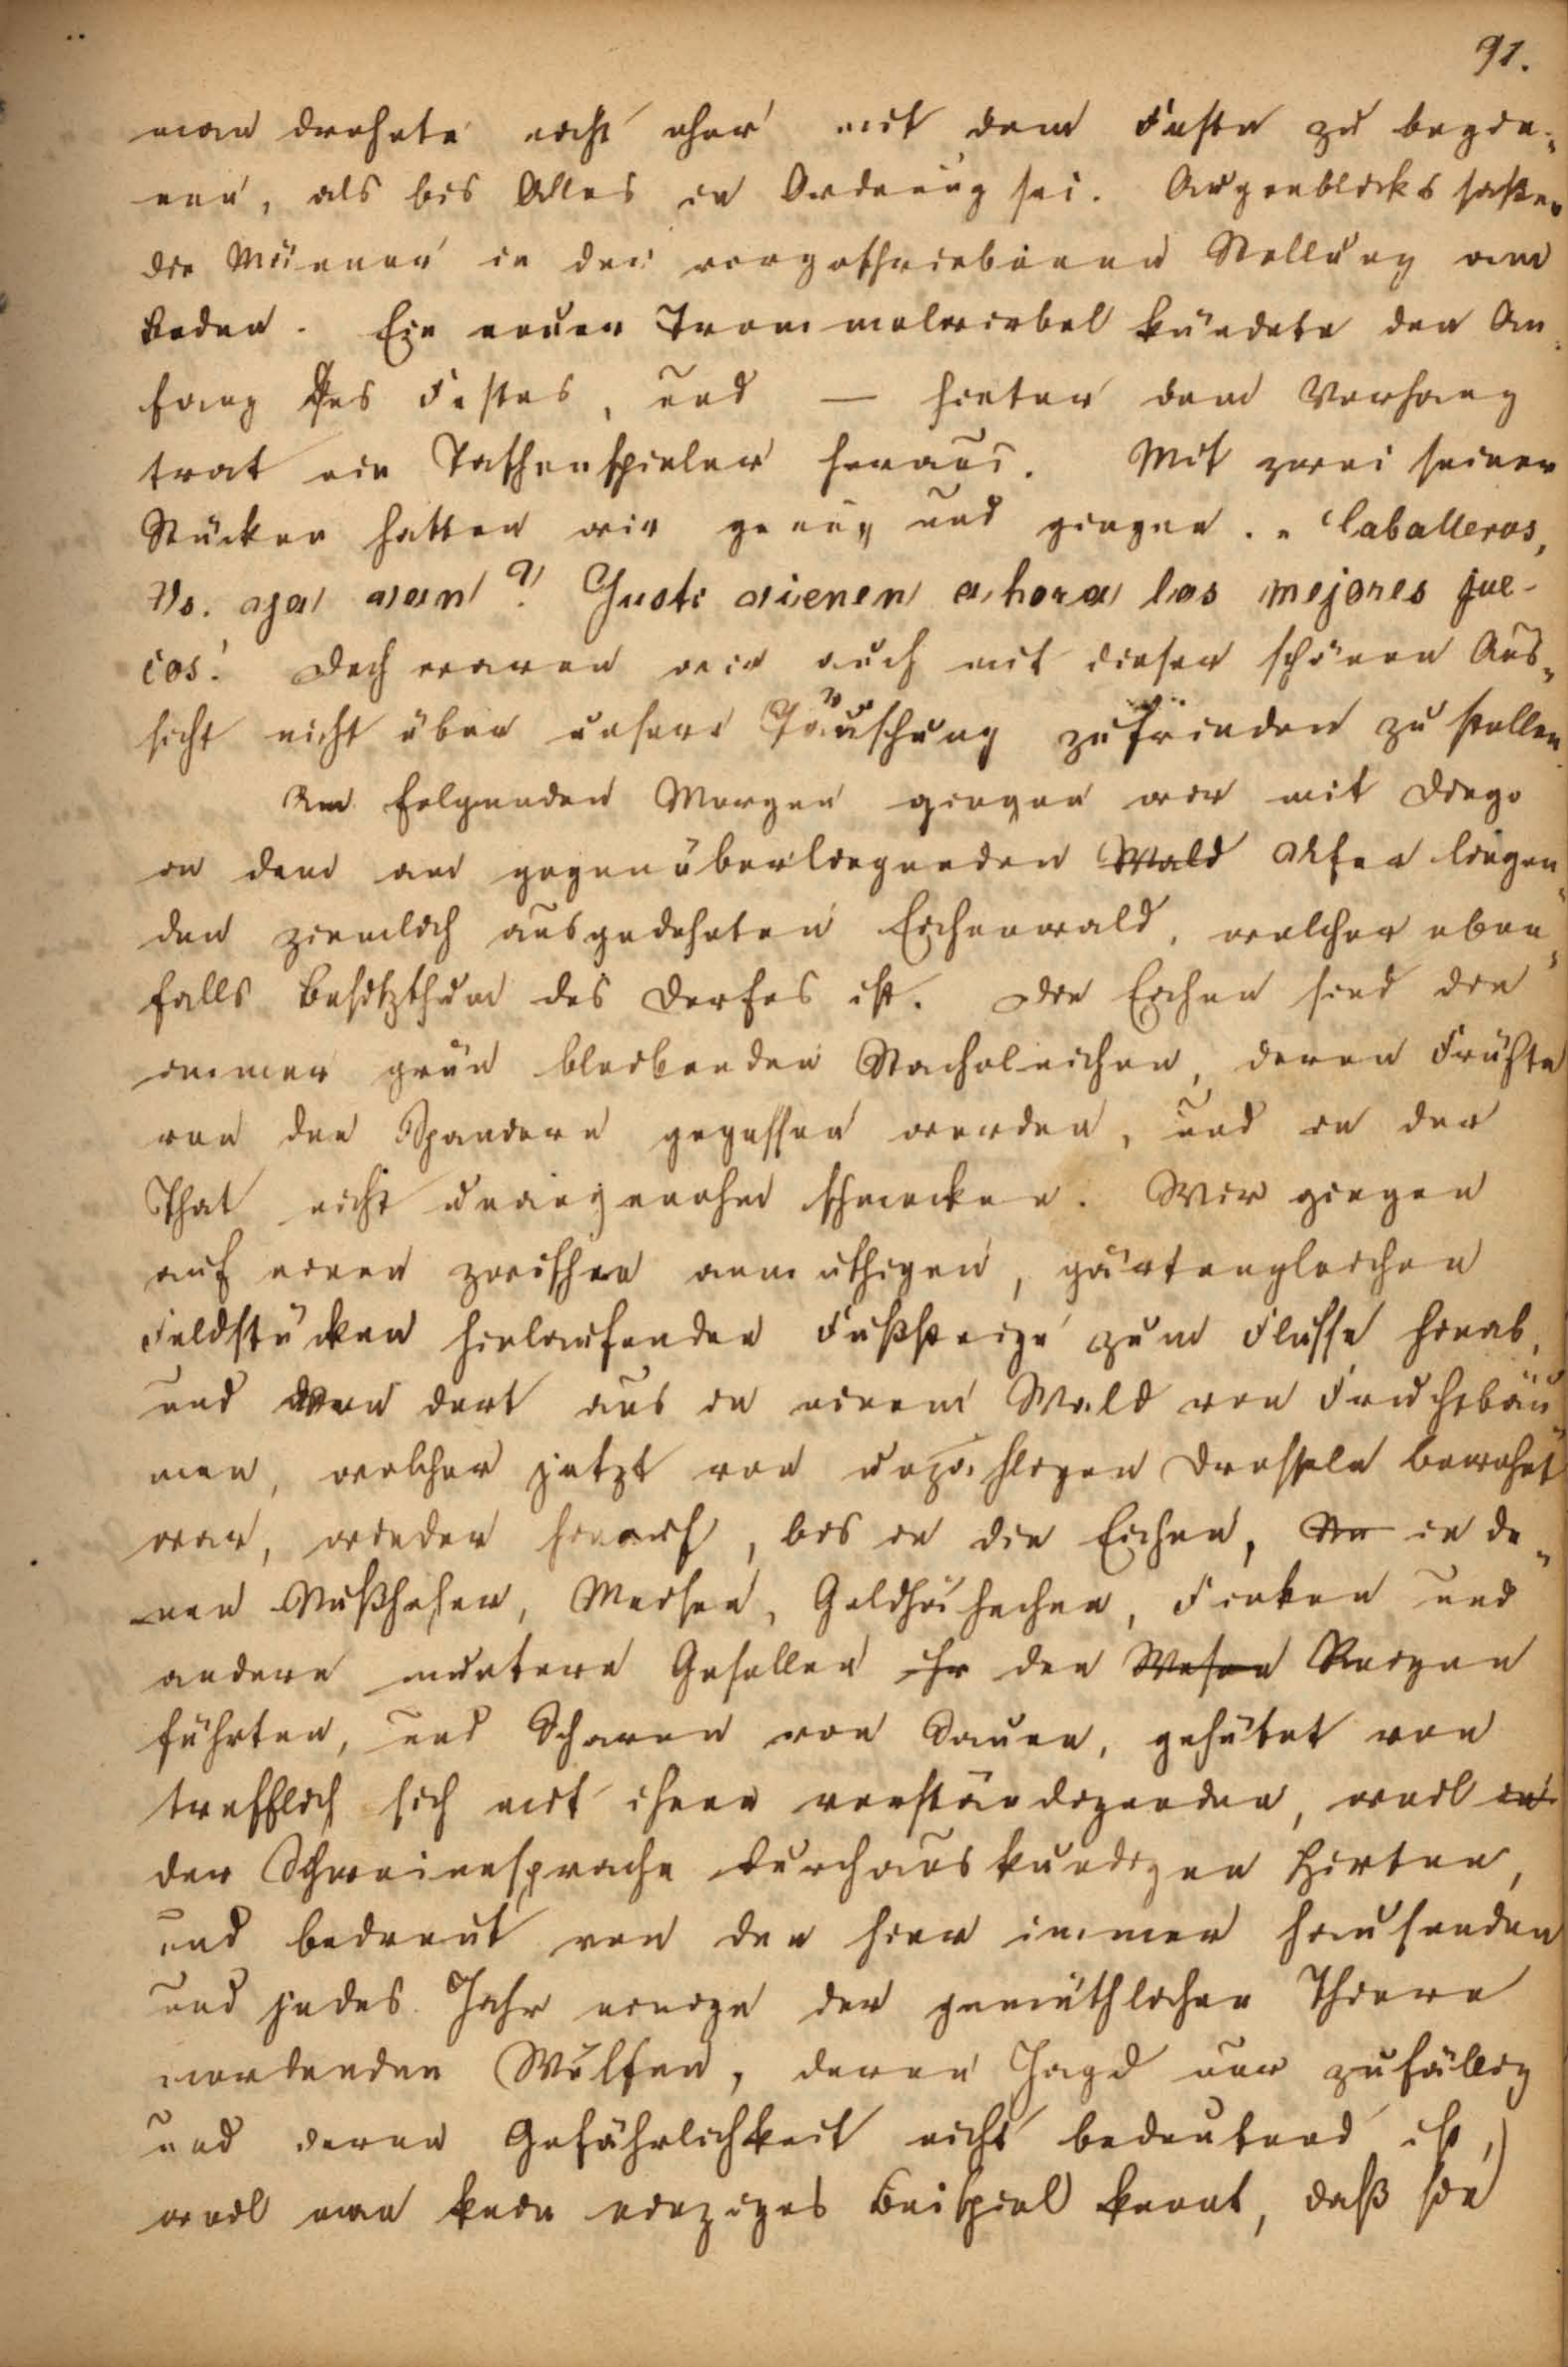 91.
man drohete nicht eher mit dem Feste zu begin-
nen, als bis Alles in Ordnung sei. Augenblicks saßen
die Männer in der vorgeschriebenen Stellung am
Boden. Ein neuer Trommelwirbel kündete den An-
fang des Festes, und — hinter dem Vorhang
trat ein Taschenspieler heraus. Mit zwei seiner
Stücken hatten wir genug und gingen. „Caballeros,
Vs. ya van? Justo vienen ahora los mejores jue-
cos! Doch waren wir auch mit dieser schönen Aus-
sicht nicht über unsere Täuschung zufrieden zu stellen.
Am folgenden Morgen gingen wir mit Diego
in dem am gegenüberliegenden Wald Ufer liegen-
den ziemlich ausgedehnten Eichenwald, welcher eben-
falls Besitzthum des Dorfes ist. Die Eichen sind die
immer grün bleibenden Stacheleichen, deren Früchte
von den Spaniern gegessen werden, und in der
That nicht unangenehm schmecken. Wir gingen
auf einen zwischen anmuthigen, gärtengleichen
Feldstücken hinlaufenden Fußsteige zum Flusse hinab,
und von dort aus in einem Wald von Fruchtbäu-
men, welcher jetzt von unzähligen Drosseln bewohnt
war, wieder hinauf, bis in die Eichen, in de-
nen Nußheher, Meisen, Goldhähnchen, Finken und
andere muntere Gesellen ihr den Wesen Reigen
führten, und Scharen von Sauen, gehütet von
trefflich sich mit ihnen verständigenden, weil in
der Schweinesprache durchaus kundigen Hirten,
und bedreut von den hier immer hausenden
und jedes Jahr einige der gemüthlichen Thiere
mordenden Wölfen, deren Jagd nur zufällig
und deren Gefährlichkeit nicht bedeutend ist,
weil man kein einziges Beispiel kennt, daß sie